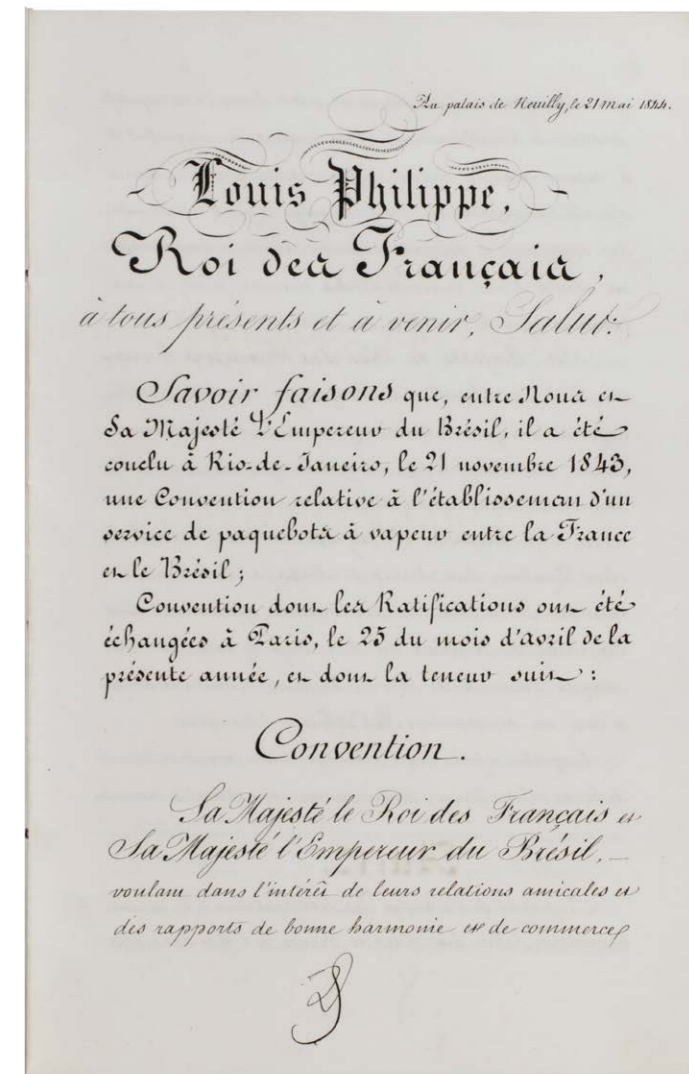 Au palais de Neuilly, le 21 mai 1844.
Louis Philippe,
Roi des Français,
à tous présents et à venir, Salut.
Savoir faisons que, entre Nous et
Sa Majesté l'Empereur du Brésil, il a été
conclu à Rio-de-Janeiro, le 21 novembre 1843,
une Convention relative à l'établissement d'un
service de paquebots à vapeur entre la France
et le Brésil ;
Convention dont les Ratifications ont été
échangées à Paris, le 25 du mois d'avril de la
présente année, et dont la teneur suit :
Convention.
Sa Majesté le Roi des Français et
Sa Majesté l'Empereur du Brésil,
voulant dans l'intérêt de leurs relations amicales et
des rapports de bonne harmonie et de commerce